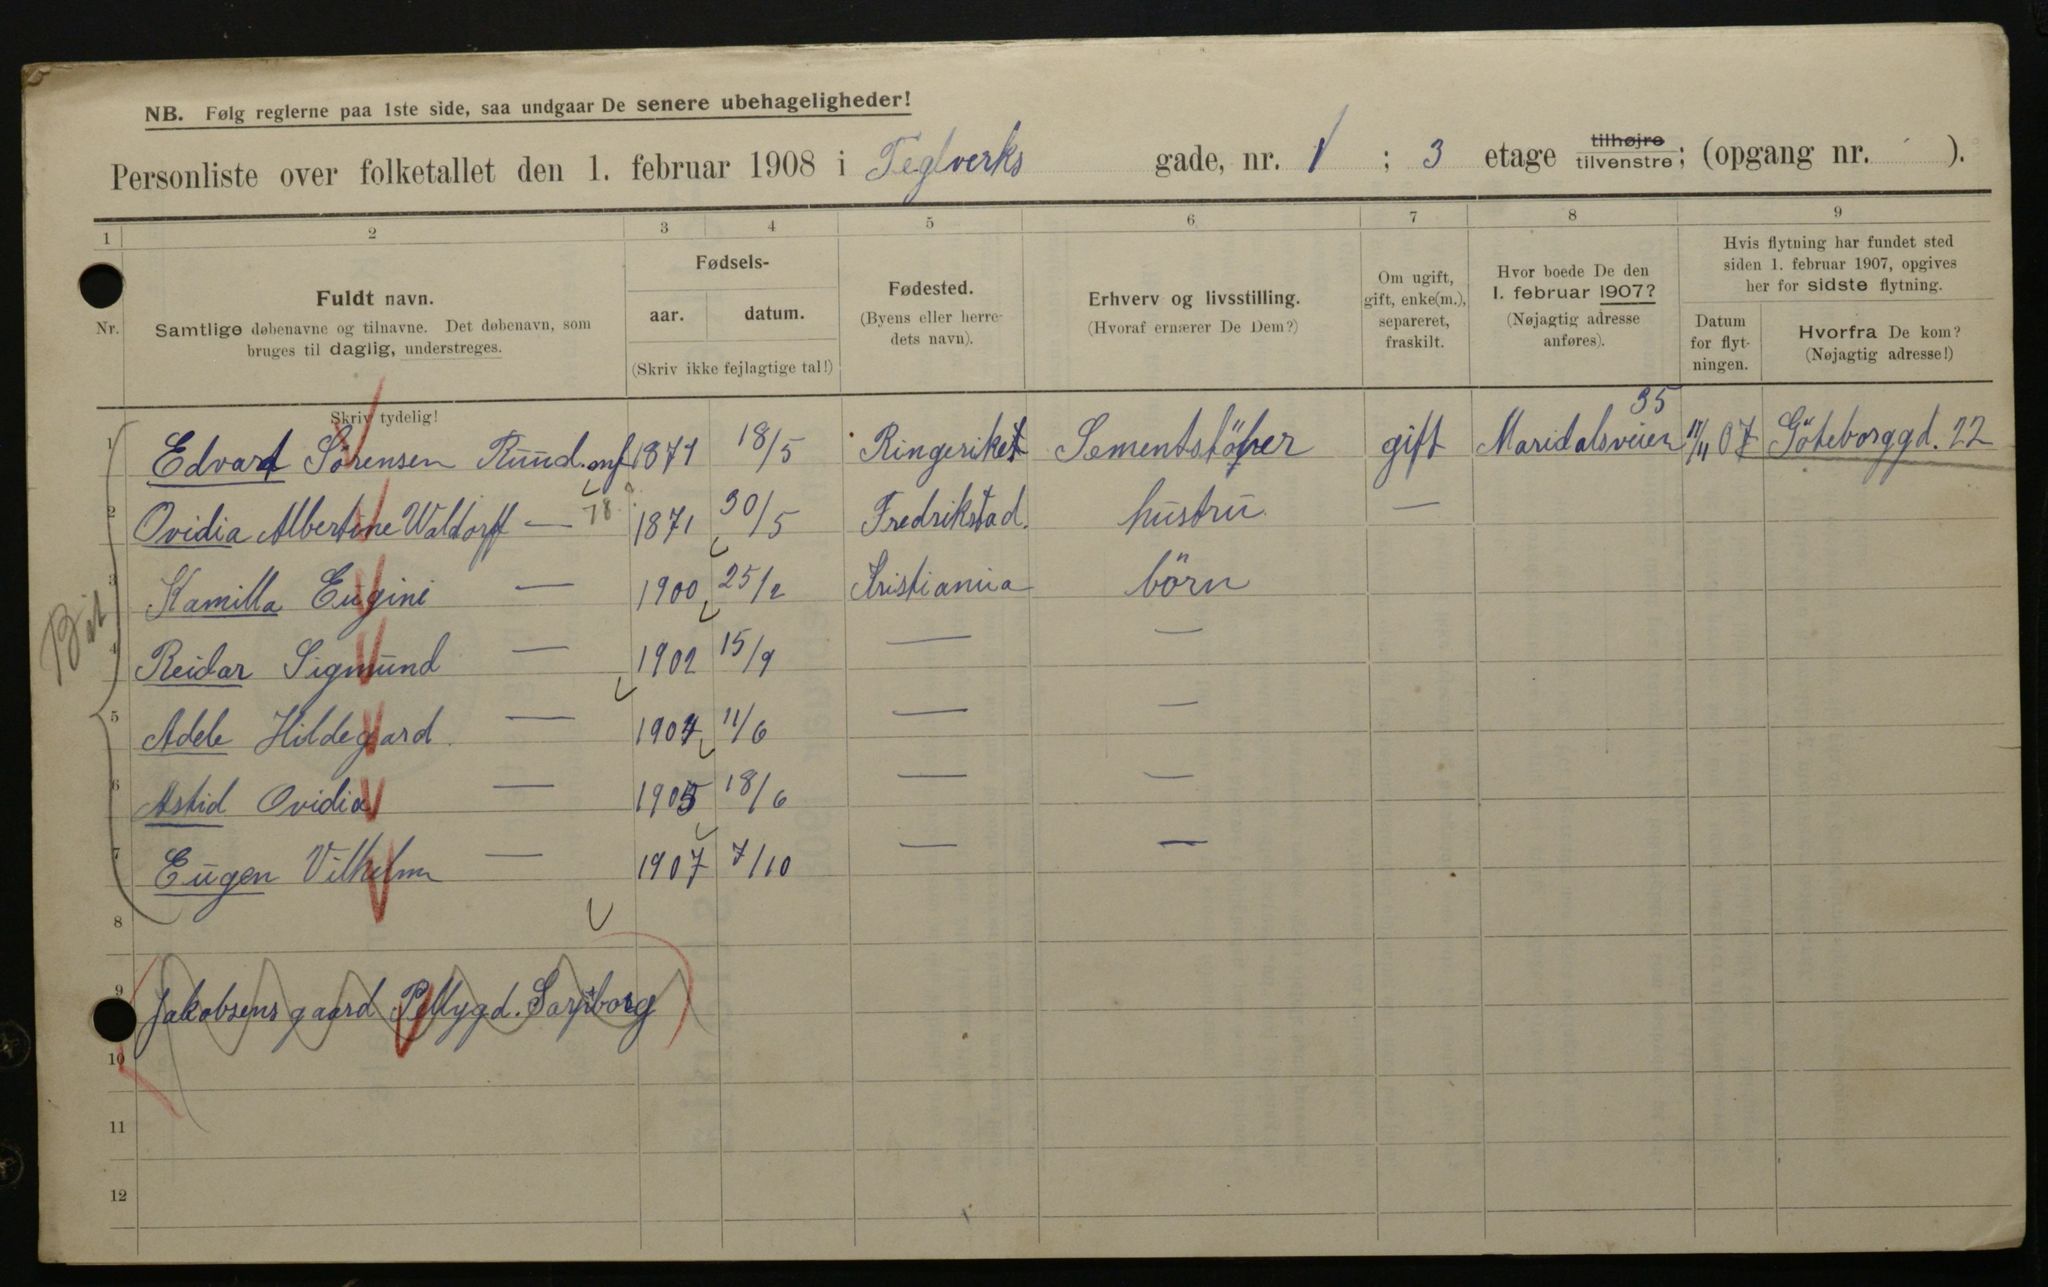 NB. Følg reglerne paa 1ste side, saa undgaar De senere ubehageligheder!
Personliste over folketallet den 1. februar 1908 i Teglverks gade, nr. 1 ; 3 etage tilhøjre tilvenstre; (opgang nr. ).
1 2 3 4 5 6 7 8 9
Nr.
Fuldt navn.
Samtlige døbenavne og tilnavne. Det døbenavn, som
bruges til daglig, understreges.
Skriv tydelig!
Fødsels-
aar. datum.
(Skriv ikke fejlagtige tal!)
Fødested.
(Byens eller herre-
dets navn).
Erhverv og livsstilling.
(Hvoraf ernærer De Dem?)
Om ugift,
gift, enke(m.),
separeret,
fraskilt.
Hvor boede De den
1. februar 1907?
(Nøjagtig adresse
anføres).
Hvis flytning har fundet sted
siden 1. februar 1907, opgives
her for sidste flytning.
Datum
for flyt-
ningen.
Hvorfra De kom?
(Nøjagtig adresse!)
35
1 Edvard Sørensen Ruud. 1871 18/5 Ringeriket Sementstöper gift Maridalsveien 11/11 07 Göteborggd. 22
78
2 Ovidia Albertine Waldorff — 1871 30/5 Fredrikstad. hustru —
3 Kamilla Eugine — 1900 25/2 Kristiania börn
4 Reidar Sigmund — 1902 15/9 — —
5 Adele Hildegard. — 1904 11/6 — —
6 Astid Ovidia — 1905 18/6 — —
7 Eugen Vilhelm — 1907 7/10 — —
8
9 Jakobsens gaard Sarpsborg
10
11
12